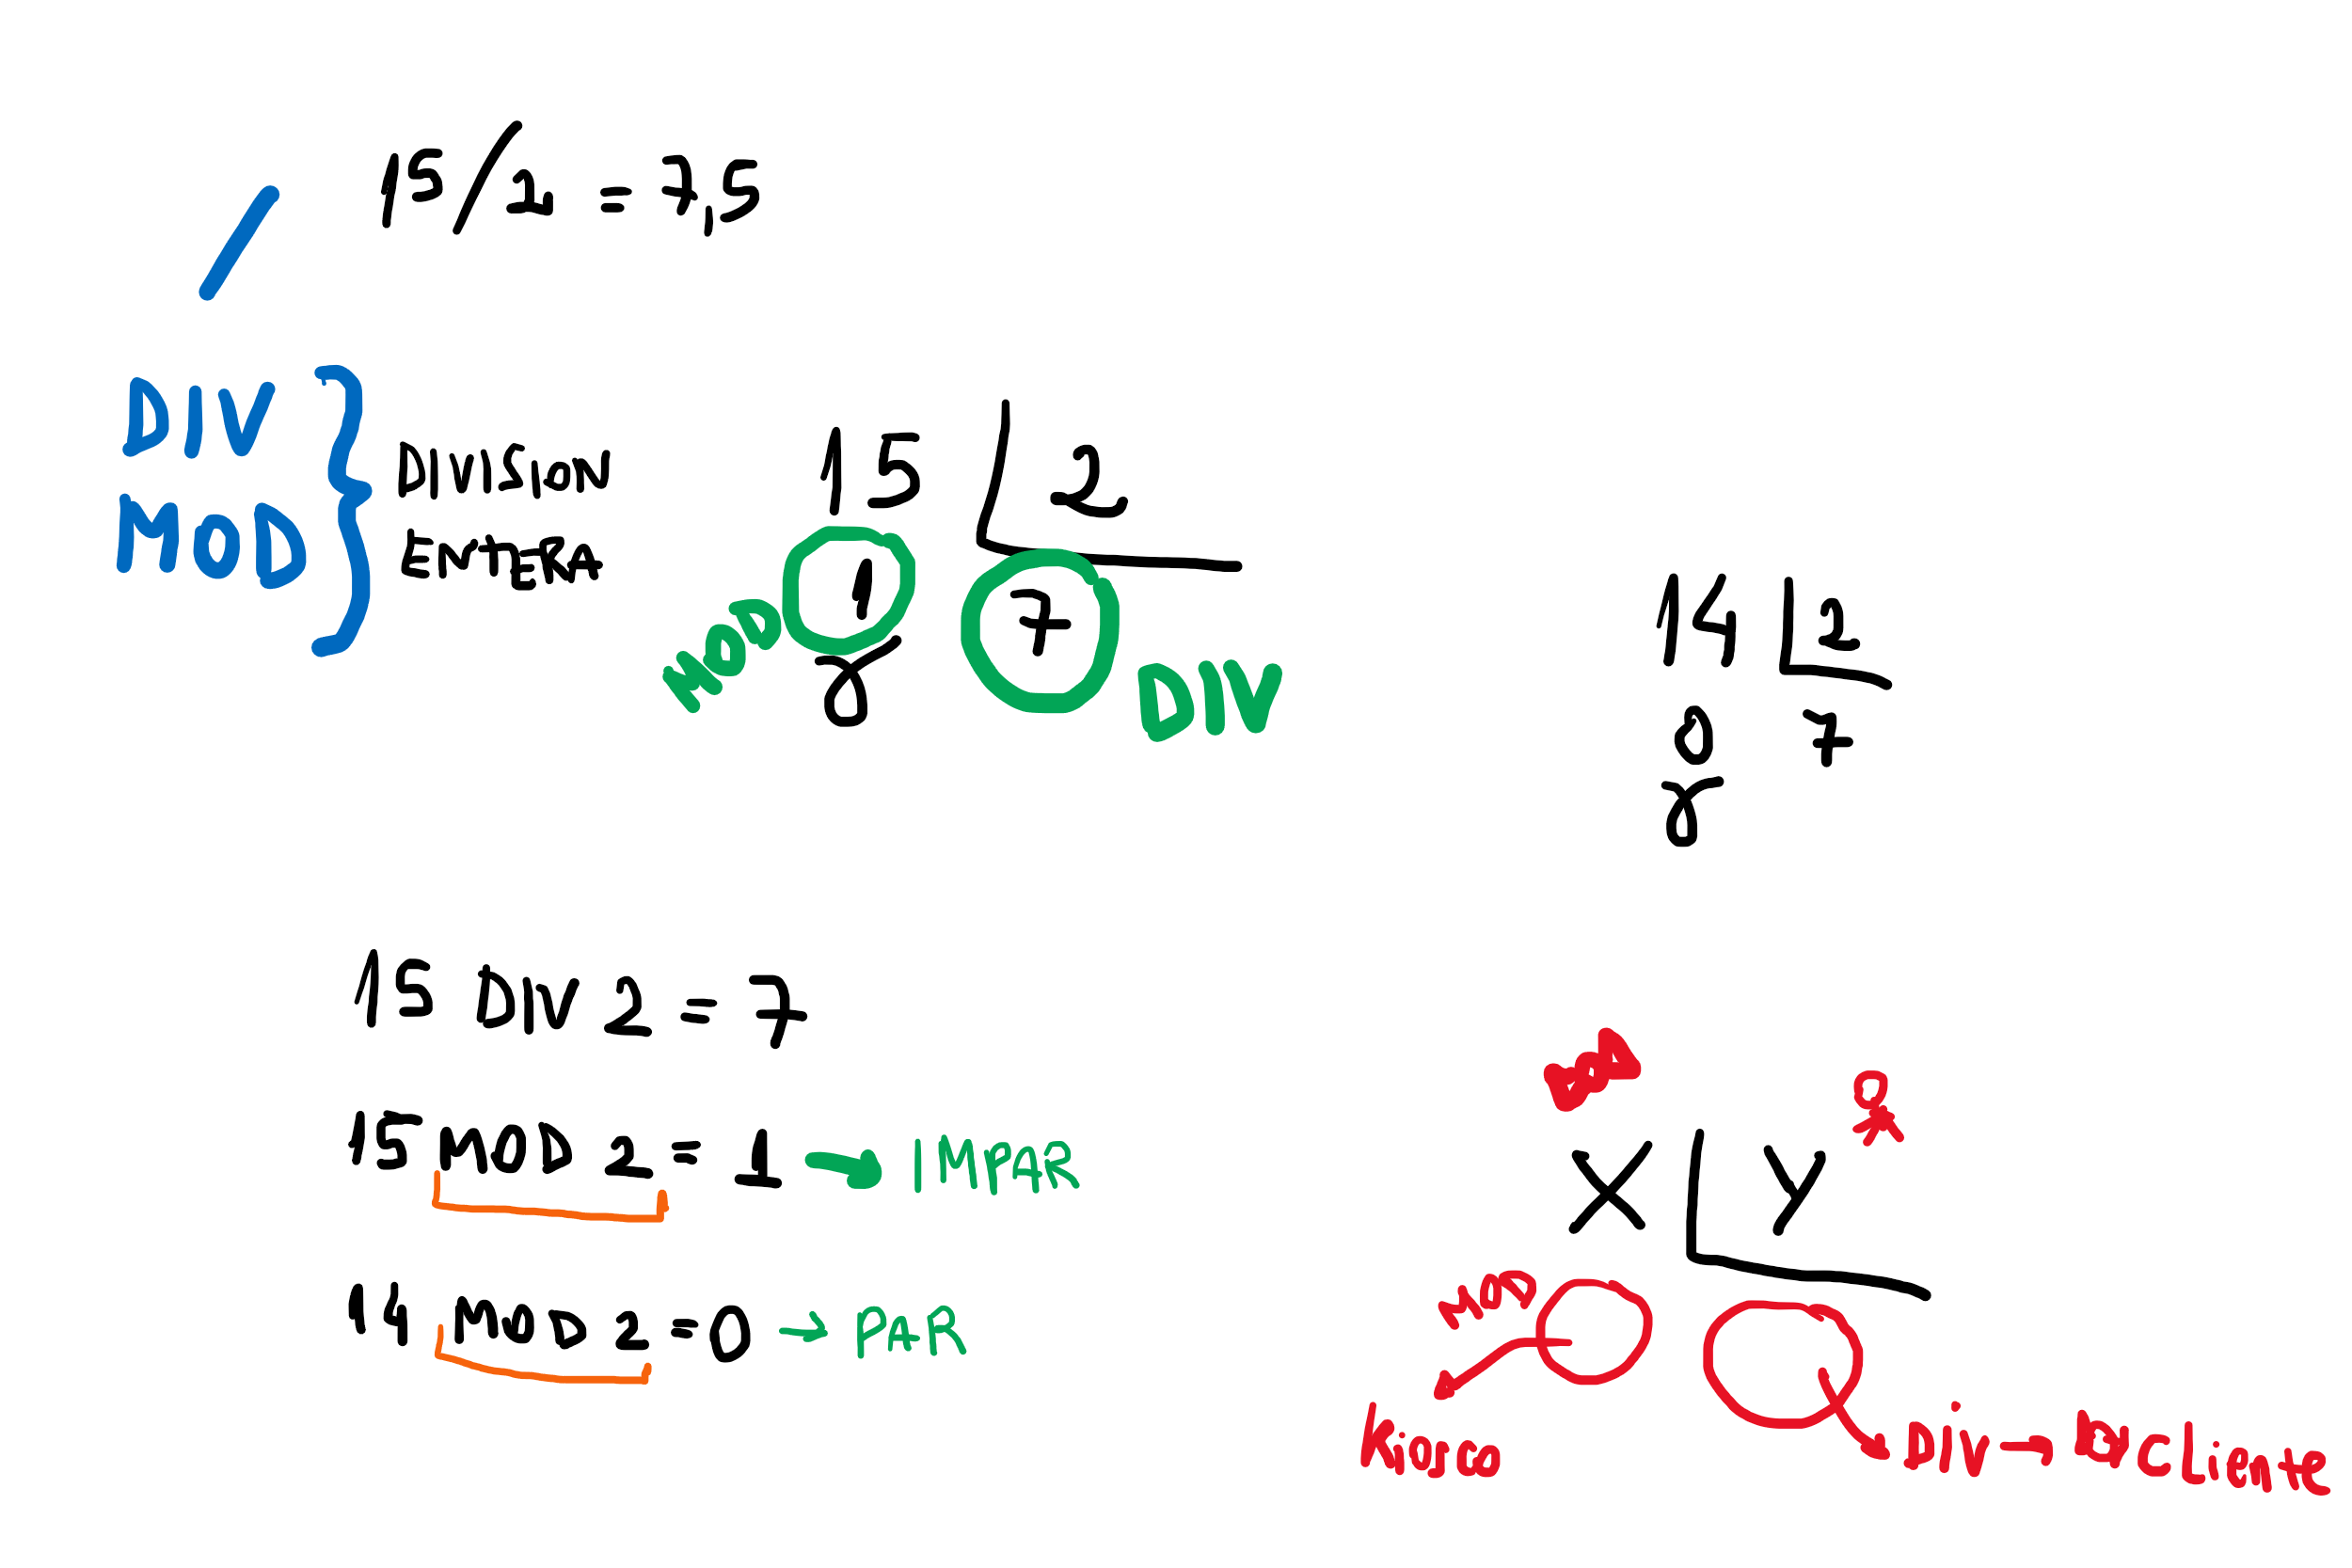 / 15/2 = 7,5
DIV
MOD
DIVISION
ENTERA
15 2
1 7
MOD
DIV
14 2
0 7
15 DIV 2 = 7
15 MOD 2 = 1 → IMPAR
14 MOD 2 = 0 → PAR
X Y
MOD
Kiosco
Div → Cliente